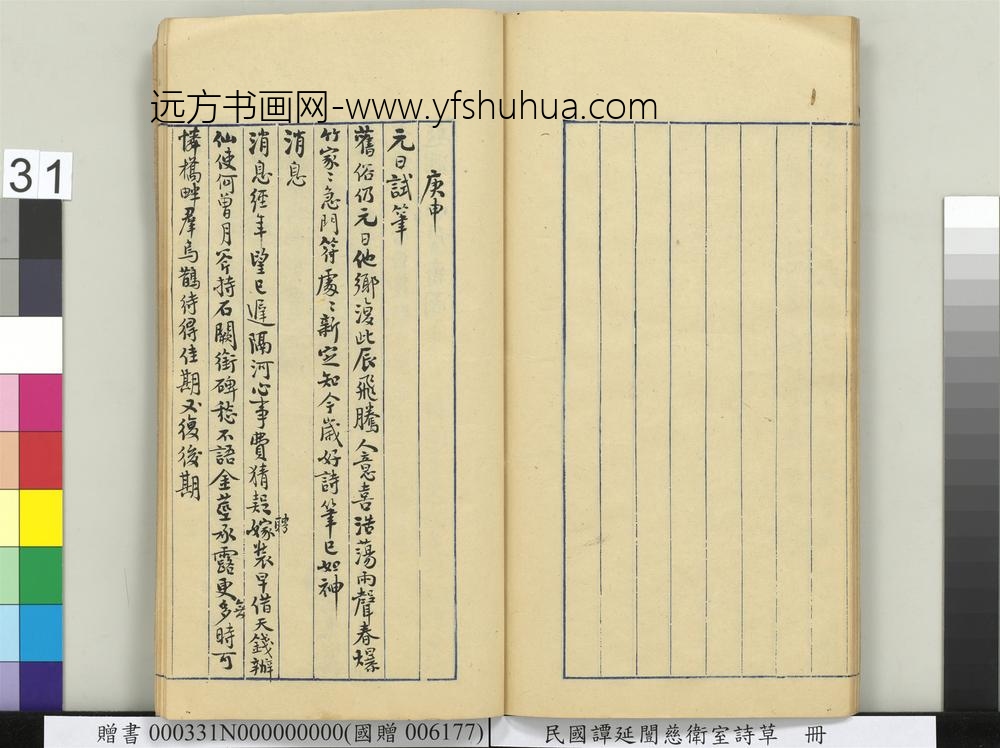 远方书画网-www.yfshuhua.com
31
庚申
元日試筆
舊俗仍元日他鄉復此辰飛騰人意喜浩蕩雨聲春爆
竹家〻急門符處〻新定知今歲好詩筆已如神
消息
消息經年望已遲隔河心事費猜疑嫁裝早借天錢辦
聘
仙使何曾月斧持石闕銜碑愁不語金莖承露更多時可
無
憐橋畔羣烏鵲待得佳期又後期
贈書 000331N000000000(國贈 006177)
民國譚延闓慈衛室詩草 冊